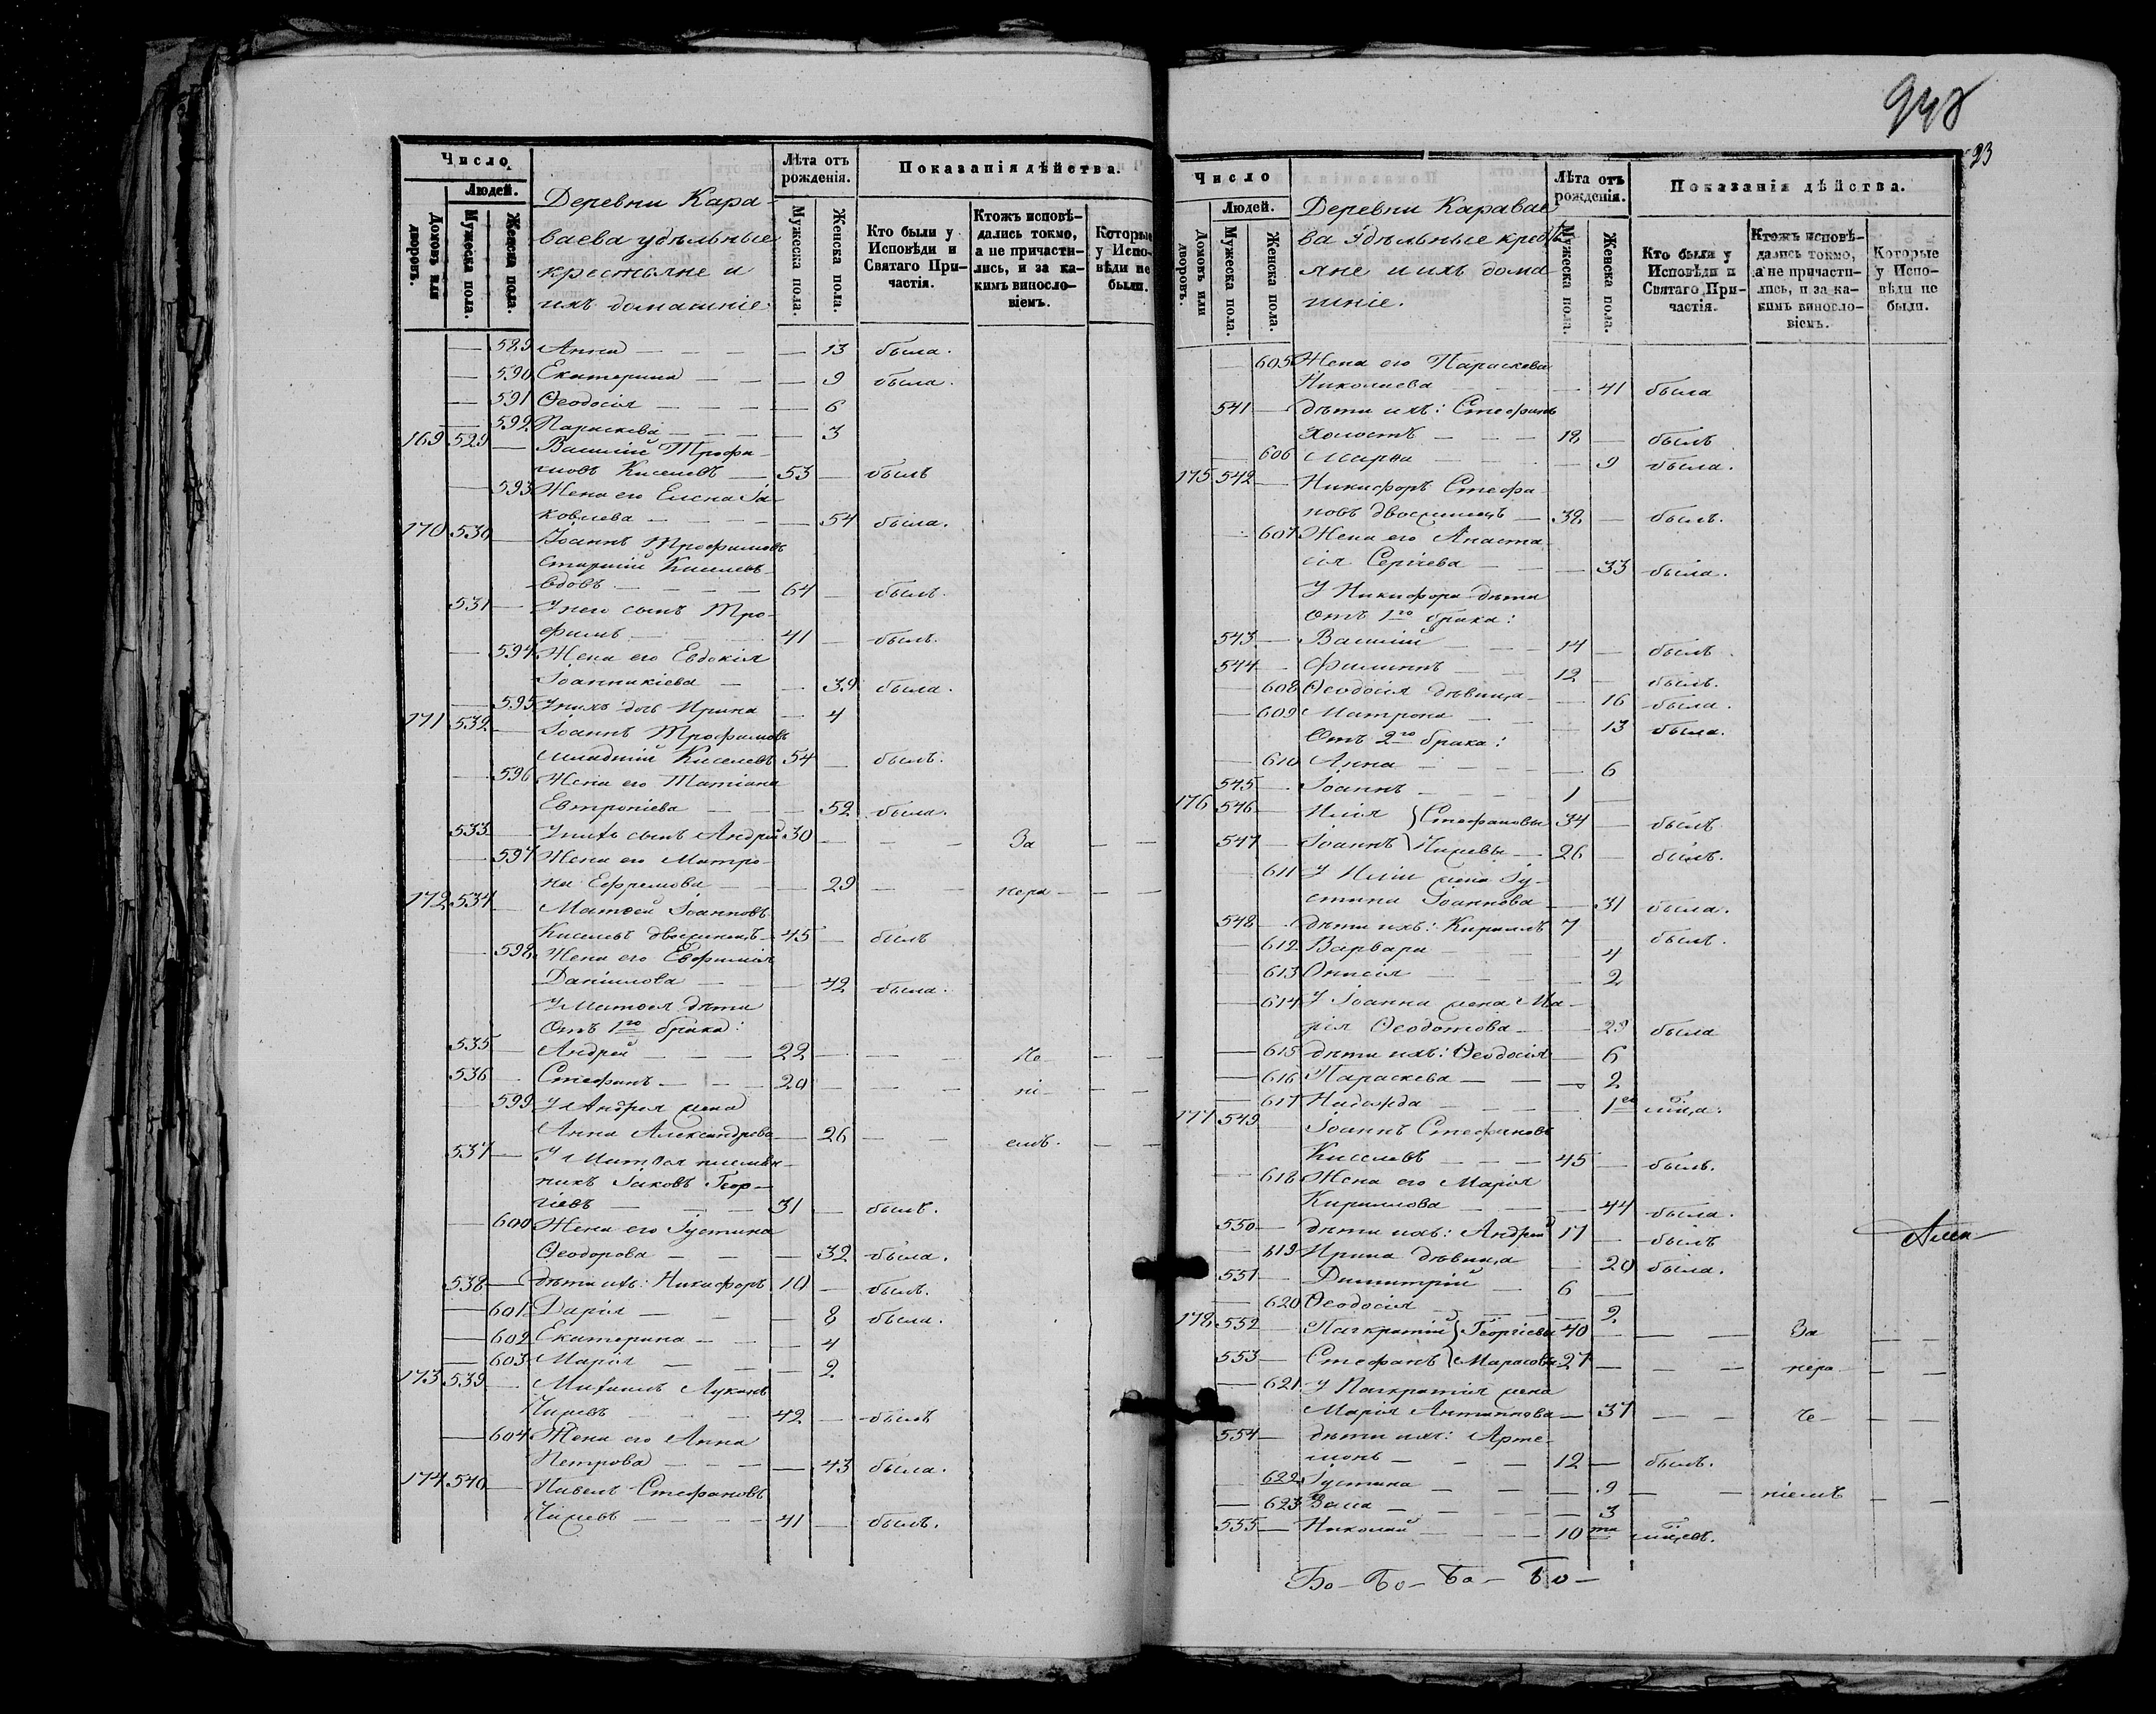 948
23
Число
Людей.
Домовъ или дворовъ.
Мужеска пола.
Женска пола.
Деревни Кара-
ваева удѣльные
крестьяне и
ихъ домашніе
Лѣта отъ рожденія.
Мужеска пола.
Женска пола.
Показанія дѣйства.
Кто были у Исповѣди и Святаго При-частія.
Ктожъ исповѣ-дались токмо, а не причасти-лись, и за ка-кимъ винословіемъ.
Которые у Испо-вѣди не были.
589 Анна 13 была.
590 Екатерина 9 была.
591 Ѳеодосія 6
592 Параскева 3
169 529 Василій Трофи-
мовъ Киселевъ 53 былъ
593 Жена его Елена Іа-
ковлева 54 была.
170 530 Іоаннъ Трофимовъ
старшій Киселевъ
вдовъ 64 былъ.
531 У него сынъ Тро-
фимъ 41 былъ.
594 Жена его Евдокія
Іоанникіева 39 была.
595 У нихъ дочь Ирина 4
171 532 Іоаннъ Трофимовъ
младшій Киселевъ 54 былъ.
596 Жена его Татіана
Евтропіева 52 была.
533 У нихъ сынъ Андрей 30 За
597 Жена его Матро-
на Ефремова 29 нера
172 534 Матѳей Іоанновъ
Киселевъ двоеженецъ 45 былъ
598 Жена его Евфимія
Даніилова 42 была.
У Матѳея дѣти
отъ 1го брака:
535 Андрей 22 че
536 Стефанъ 20 ні
599 У Андрея жена
Анна Александрова 26 емъ.
537 У Матѳея племян-
никъ Іаковъ Геор-
гіевъ 31 былъ.
600 Жена его Іустина
Ѳеодорова 32 была.
538 дѣти ихъ: Никифоръ 10 былъ.
601 Дарія 8 была.
602 Екатерина 4
603 Марія 2
173 539 Михаилъ Лукинъ
42 былъ
604 Жена его Анна
Петрова 43 была.
174 540 Павелъ Стефановъ
41 былъ.
Число
Людей.
Домовъ или дворовъ.
Мужеска пола.
Женска пола.
Деревни Каравае
ва удѣльные крестья
яне и ихъ дома
шніе.
Лѣта отъ рожденія.
Мужеска пола.
Женска пола.
Показанія дѣйства.
Кто были у Исповѣди и Святаго При-частія.
Ктожъ исповѣ-дались токмо, а не причасти-лись, и за ка-кимъ винословіемъ.
Которые у Испо-вѣди не были.
605 Жена его Параскева
Николаева 41 была
541 дѣти ихъ: Стефанъ
холостъ 18 былъ
606 Марѳа 9 была.
175 542 Никифоръ Стефа-
новъ двоеженецъ 38 былъ.
607 Жена его Анаста
сія Сергіева 33 была.
У Никифора дѣти
отъ 1го брака:
543 Василій 14 былъ.
544 Филиппъ 12 былъ.
608 Ѳеодосія дѣвица 16 была.
609 Матрона 13 была.
Отъ 2го брака:
610 Анна 6
545 Іоаннъ 1
176 546 Илія } Стефановы 34 былъ
547 Іоаннъ } 26 былъ.
611 У Иліи жена Іу-
стина Іоаннова 31 была.
548 дѣти ихъ: Кириллъ 7 былъ.
612 Варвара 4
613 Онисія 2
614 У Іоанна жена Ма-
рія Ѳеодотова 29 была
615 дѣти ихъ: Ѳеодосія 6
616 Параскева 2
617 Надежда 1го мѣсяца.
177 549 Іоаннъ Стефановъ
Киселевъ 45 былъ.
618 Жена его Марія
Кириллова 44 была.
550 дѣти ихъ: Андрей 17 былъ
619 Ирина дѣвица 20 была.
551 Димитрій 6
620 Ѳеодосія 2
178 552 Панкратій } Георгіевы 40 За
553 Стефанъ } 27 нера
621 У Панкратія жена
Марія Антипова 37 че
554 дѣти ихъ: Арте-
монъ 12 былъ.
622 Іустина 9 ніемъ
623 3
555 Николай 10ти мѣсяцевъ.
Бо— Бо— Бо— Бо—